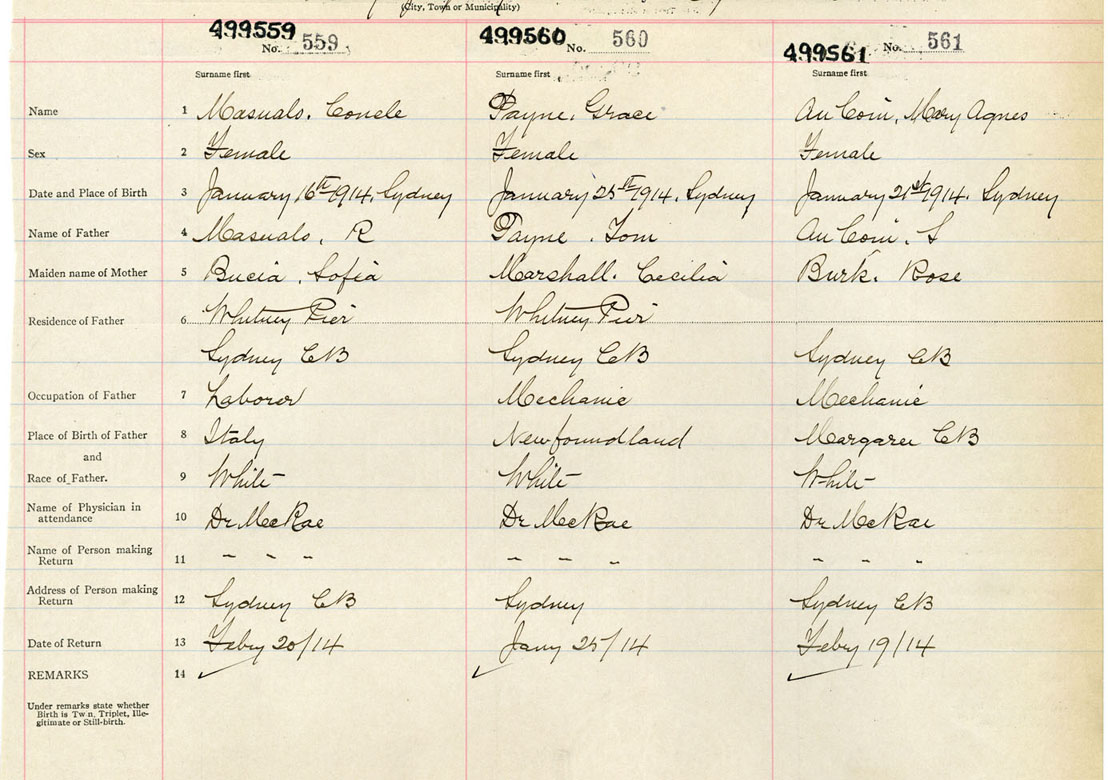 (City, Town or Municipality)
499559 No. 559 499560 No. 560 499561 No. 561
Surname first Surname first Surname first
Name 1 Masuals, Concle Payne, Grace Au Coin, Mary Agnes
Sex 2 Female Female Female
Date and Place of Birth 3 January 16th 1914, Sydney January 1914, Sydney January 21st 1914, Sydney
Name of Father 4 Masuals, R Payne, Tom Au Coin, S
Maiden name of Mother 5 Bucia, Sofia Marshall. Cecilia Burk. Rose
Residence of Father 6 Whitney Pier Whitney Pier
Sydney CB Sydney CB Sydney CB
Occupation of Father 7 Laborer Mechanic Mechanic
Place of Birth of Father 8 Italy Newfoundland Margaree CB
and
Race of Father. 9 White White White
Name of Physician in attendance 10 Dr MccRae Dr MccRae Dr McRae
Name of Person making Return 11 " " " " " " " " "
Address of Person making Return 12 Sydney CB Sydney Sydney CB
Date of Return 13 Feby 20/14 Jany 25/14 Feby 19/14
REMARKS 14
Under remarks state whether
Birth is Twn, Triplet, Ille-
gitimate or Still-birth.